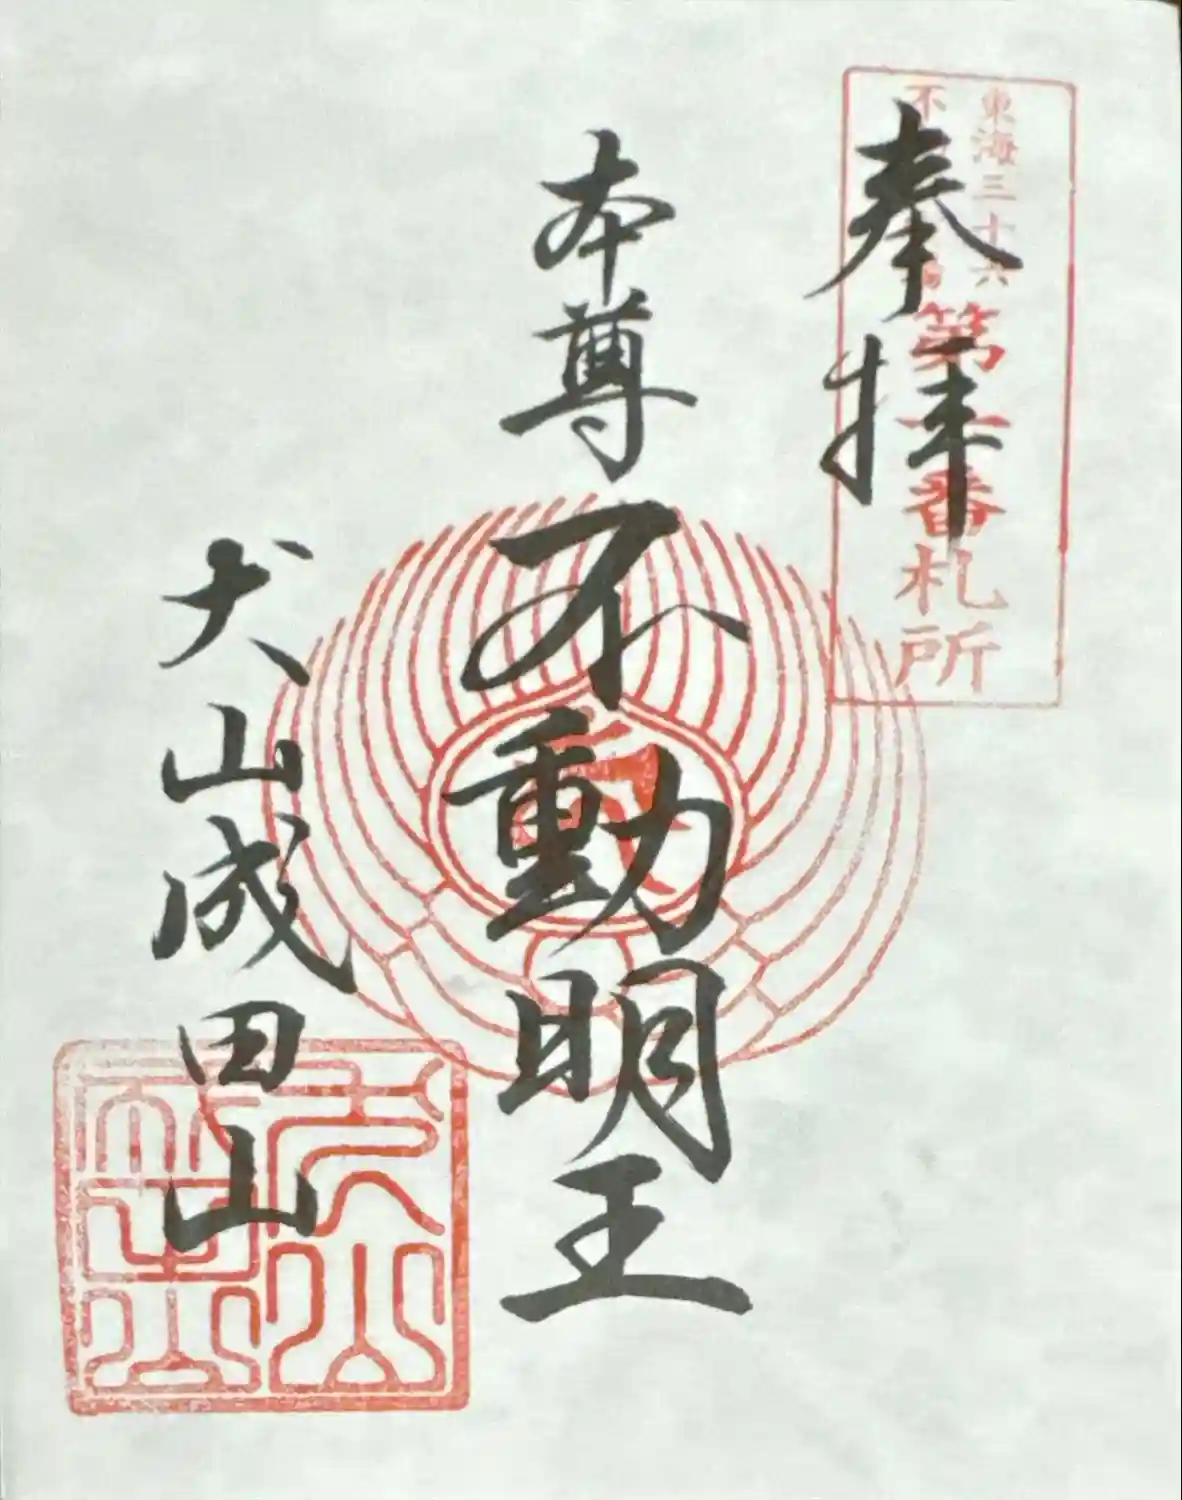 東海三十六
不
第一番札所
奉拝
本尊不動明王
犬山成田山